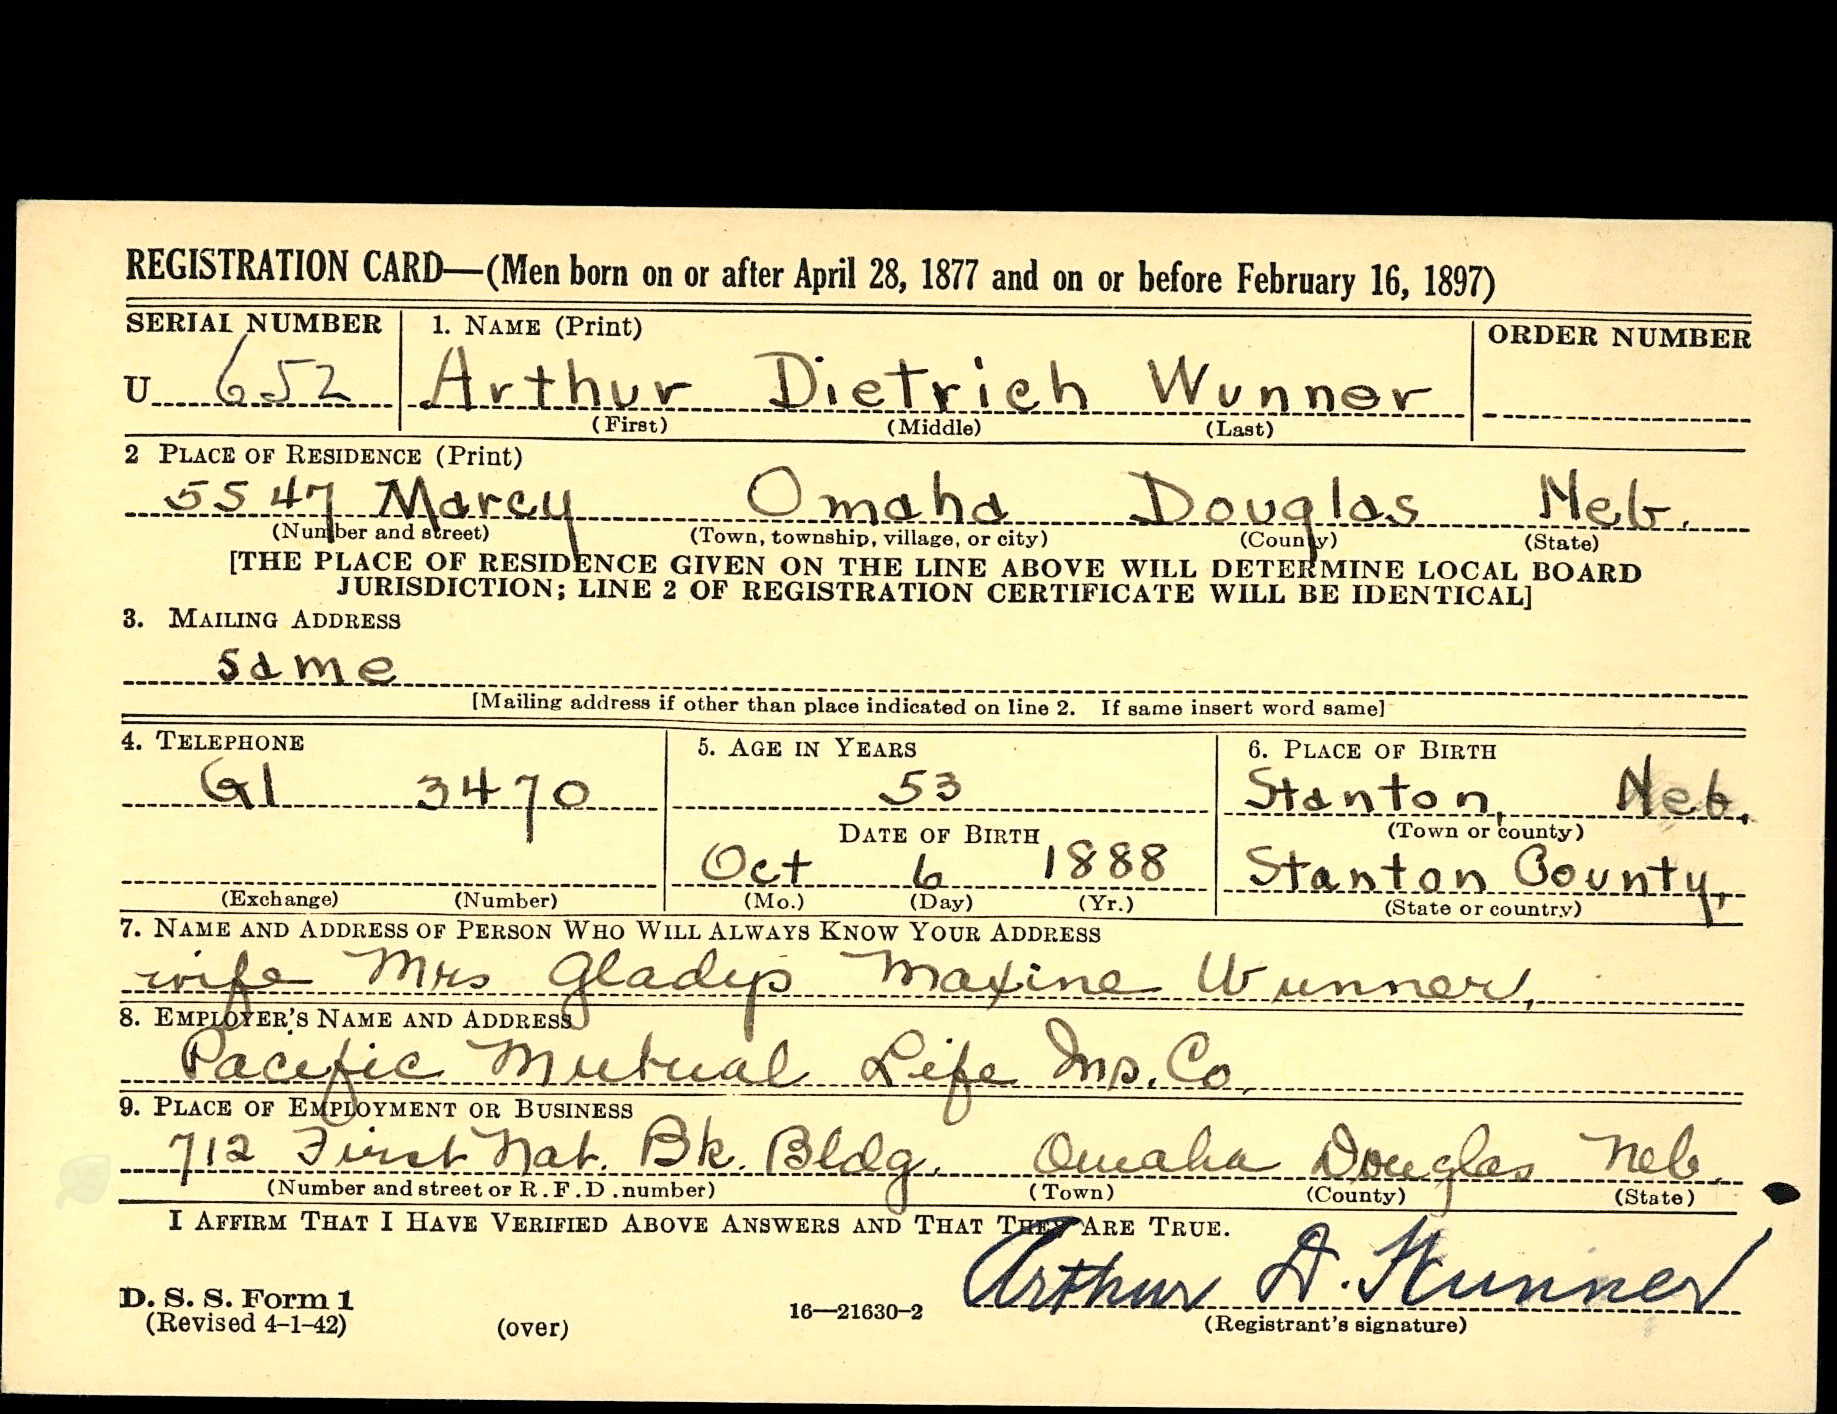 REGISTRATION CARD—(Men born on or after April 28, 1877 and on or before February 16, 1897)
SERIAL NUMBER 1. NAME (Print) ORDER NUMBER
U 652 Arthur Dietrich Wunner
(First) (Middle) (Last)
2 PLACE OF RESIDENCE (Print)
5547 Marcy Omaha Douglas Neb.
(Number and street) (Town, township, village, or city) (County) (State)
[THE PLACE OF RESIDENCE GIVEN ON THE LINE ABOVE WILL DETERMINE LOCAL BOARD
JURISDICTION; LINE 2 OF REGISTRATION CERTIFICATE WILL BE IDENTICAL]
3. MAILING ADDRESS
same
[Mailing address if other than place indicated on line 2. If same insert word same]
4. TELEPHONE 5. AGE IN YEARS 6. PLACE OF BIRTH
Gl 3470 53 Stanton, Neb.
DATE OF BIRTH (Town or county)
Oct 6 1888 Stanton County,
(Exchange) (Number) (Mo.) (Day) (Yr.) (State or country)
7. NAME AND ADDRESS OF PERSON WHO WILL ALWAYS KNOW YOUR ADDRESS
wife Mrs Gladys Maxine Wunner,
8. EMPLOYER'S NAME AND ADDRESS
Pacific Mutual Life Ins. Co.
9. PLACE OF EMPLOYMENT OR BUSINESS
712 First Nat. Bk. Bldg. Omaha Douglas Neb.
(Number and street or R.F.D. number) (Town) (County) (State)
I AFFIRM THAT I HAVE VERIFIED ABOVE ANSWERS AND THAT THEY ARE TRUE.
Arthur D. Wunner
D. S. S. Form 1
(Revised 4-1-42) (over) 16—21630-2 (Registrant's signature)